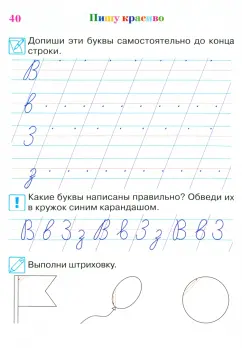 40 Пишу красиво
Допиши эти буквы самостоятельно до конца
строки.
В
в
З
з
Какие буквы написаны правильно? Обведи их
в кружок синим карандашом.
В в З з В в З з В в З
Выполни штриховку.